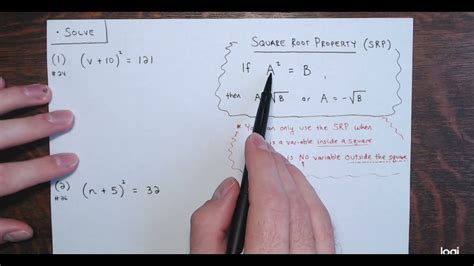 • SOLVE
SQUARE ROOT PROPERTY (SRP)
(1) (v + 10)² = 121
#24
If A² = B,
then A √B or A = -√B
* can only use the SRP when
is a variable inside a square
is NO variable outside the square
(2) (n + 5)² = 32
#26
logi